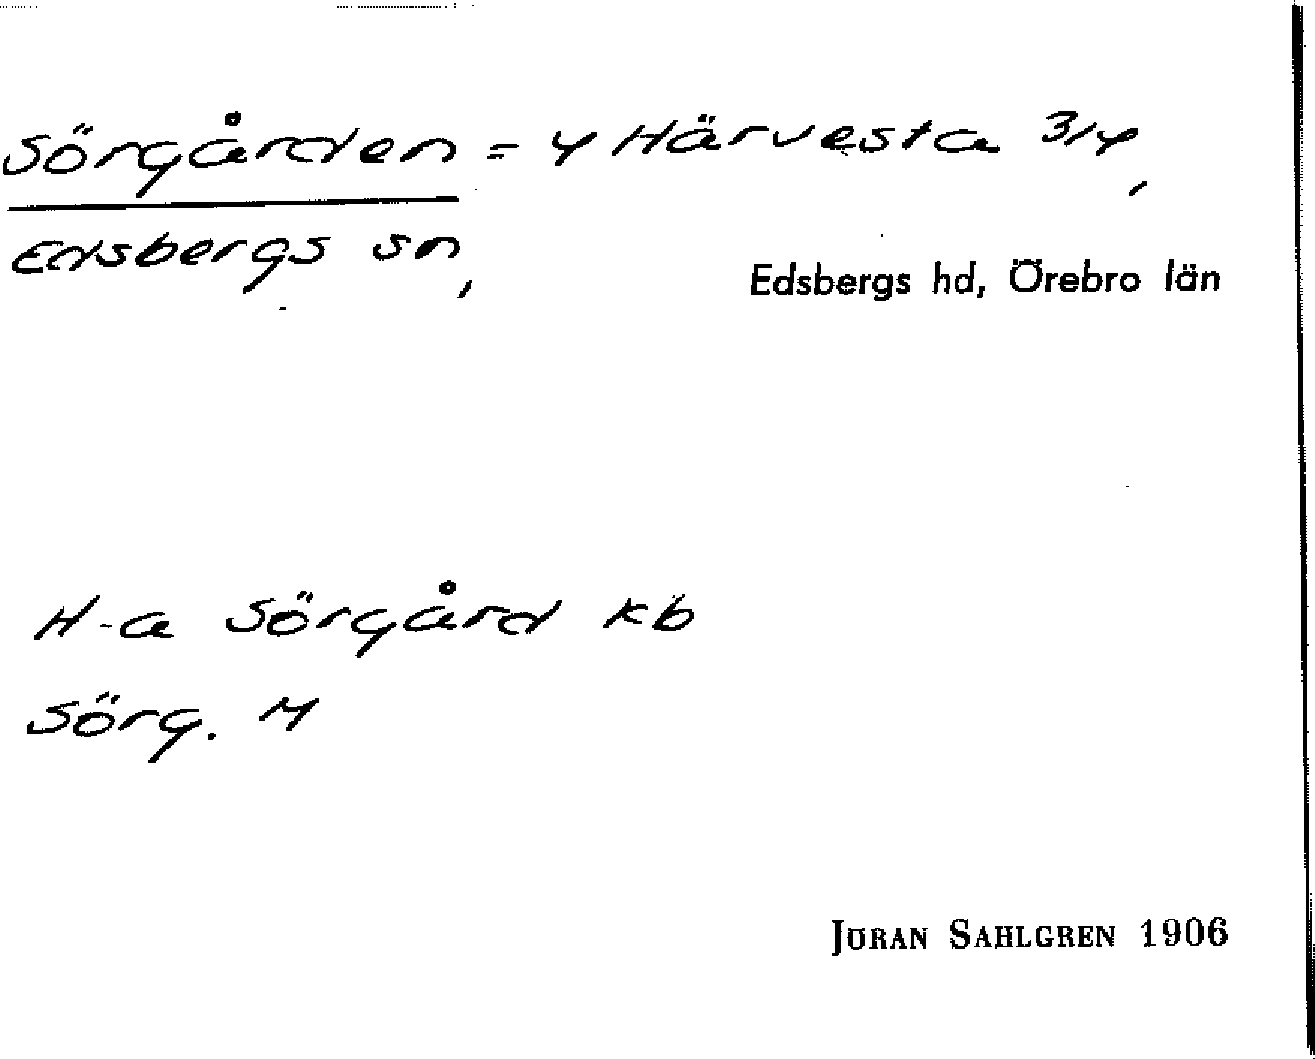 Sörgården = Y Härvesta 3/4,
Edsbergs sn,
Edsbergs hd, Örebro län
H-a Sörgård kb
Sörg. M
JÖRAN SAHLGREN 1906